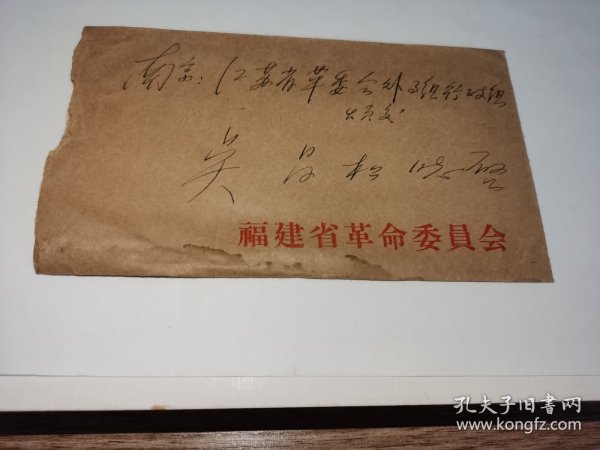 南京：江苏省革委会外事组行政组
负责
吴 松 启
福建省革命委員会
孔夫子旧书网
www.kongfz.com